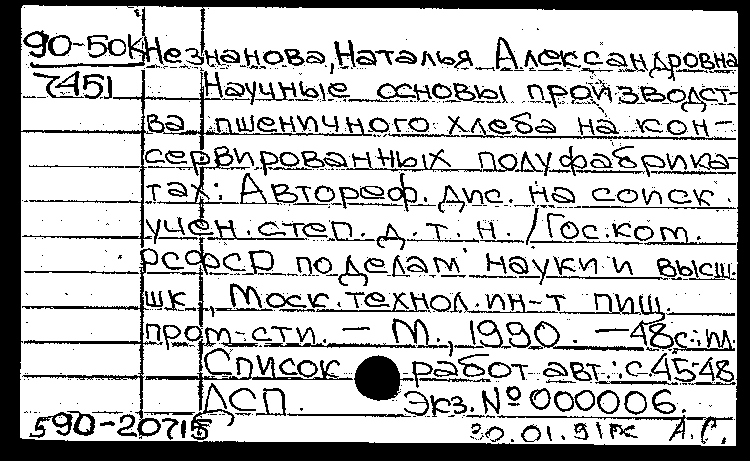 90-50к Незнанова, Наталья Александровна
7451 Научные основы производст-
ва пшеничного хлеба на кон-
сервированных полуфабрика-
тах: Автореф. дис. на соиск.
учен. степ. д. т. н. / Гос. ком.
РСФСР по делам науки и высш.
шк., Моск. технол. ин-т пищ.
пром-сти. — М., 1990. — 48 с.:
Список работ авт.: с 45-48
ДСП. Экз. № 000006.
590-20715 30.01.91 А.С.